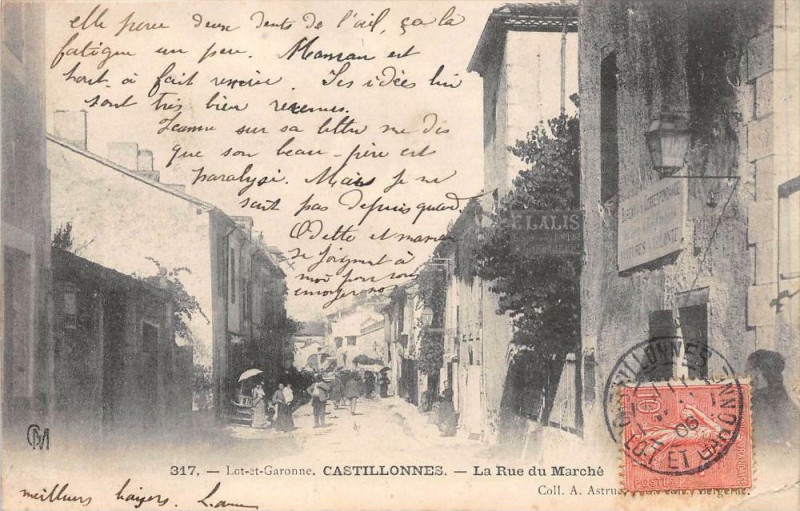 elle perce deux dents de l'œil, ça la
fatigue un peu. Maman est
tout à fait remise. Ses idées lui
sont très bien revenues.
Jeanne sur sa lettre me dis
que son beau-père est
paralysé. Mais je ne
sait pas depuis quand.
Odette et maman
se joignent à
moi pour vous
envoyer nos
meilleurs baisers. L.
E. LALIS
CM
317. - Lot-et-Garonne. CASTILLONNES. - La Rue du Marché
Coll. A. Astruc, Bergerac.
CASTILLONNES
06
LOT ET GARONNE
10
POSTES